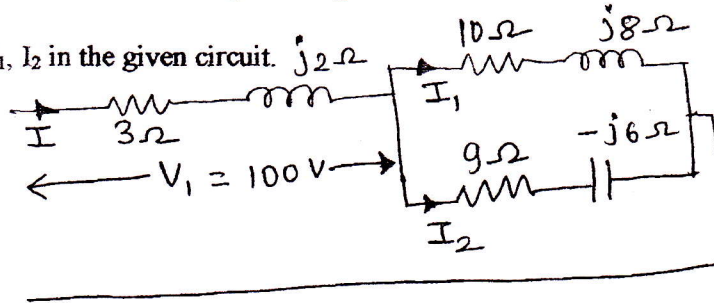 ₁, I₂ in the given circuit.
j2Ω
10Ω
j8Ω
I
3Ω
I₁
V₁ = 100 V
9Ω
-j6Ω
I₂